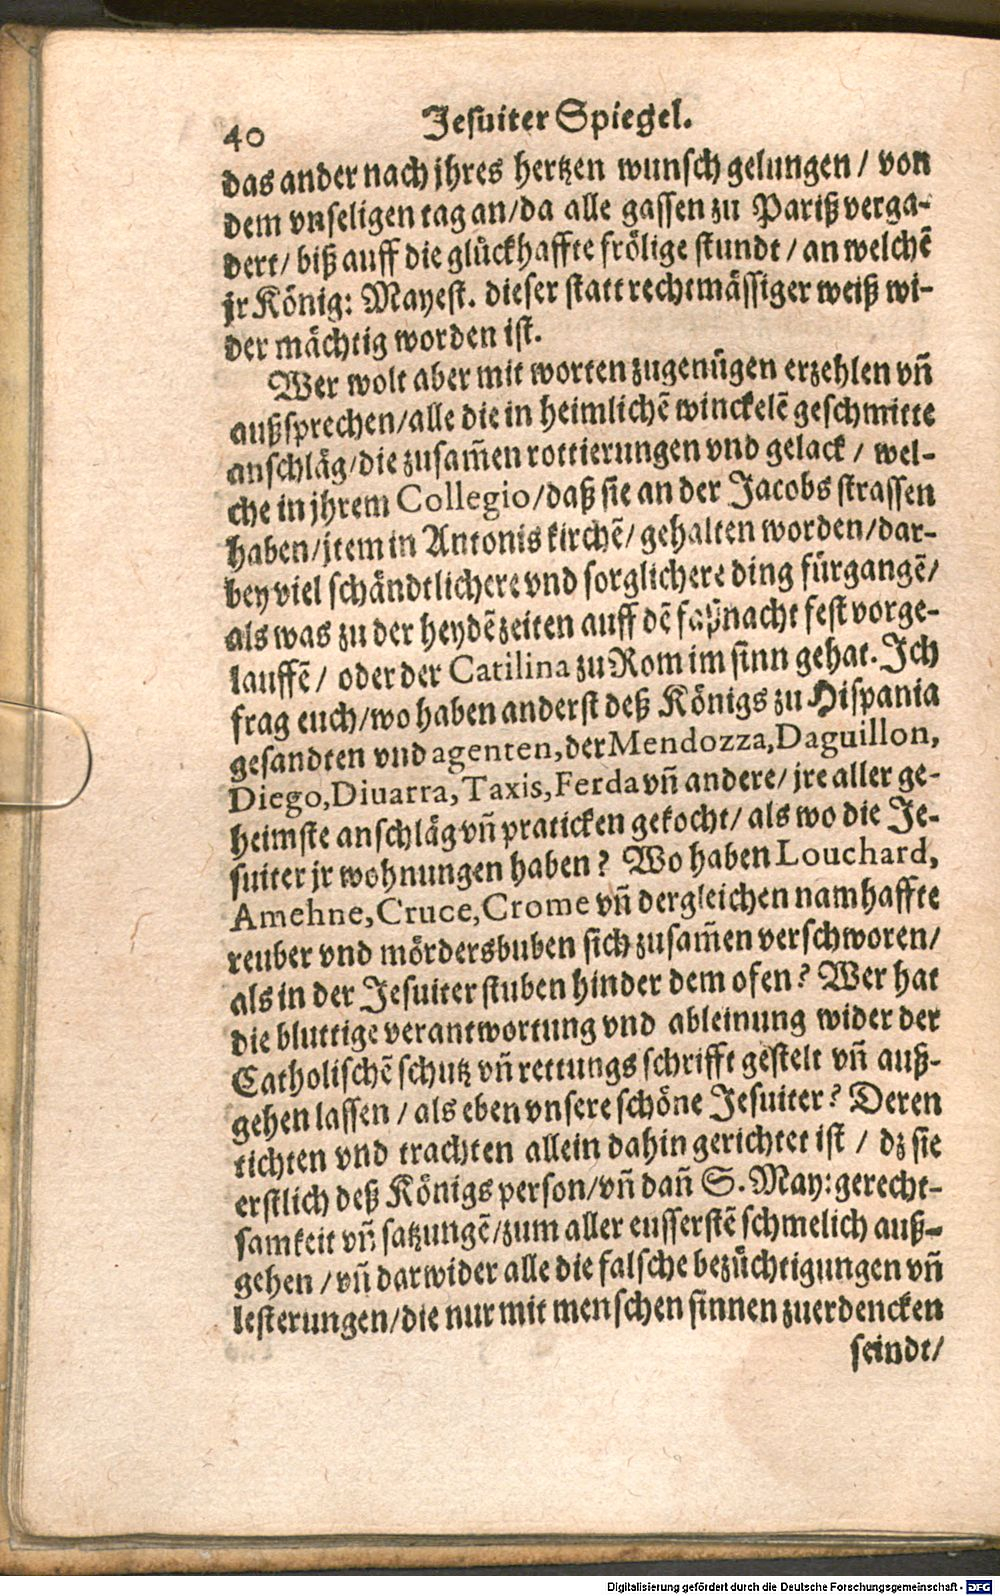 40 Jesuiter Spiegel.
das ander nach jhres hertzen wunsch gelungen / von
dem vnseligen tag an/da alle gassen zu Pariß verga-
dert/ biß auff die glückhaffte frölige stundt / an welchẽ
jr König: Mayest. dieser statt rechtmässiger weiß wi-
der mächtig worden ist.
Wer wolt aber mit worten zugenügen erzehlen vñ
außsprechen/alle die in heimlichẽ winckelẽ geschmitte
anschläg/die zusam̃en rottierungen vnd gelack / wel-
che in jhrem Collegio/daß sie an der Jacobs strassen
haben/jtem in Antonis kirchẽ/ gehalten worden/dar-
bey viel schändtlichere vnd sorglichere ding fürgangẽ/
als was zu der heydẽ zeiten auff dẽ faßnacht fest vorge-
lauffẽ/ oder der Catilina zu Rom im sinn gehat. Ich
frag euch/wo haben anderst deß Königs zu Hispania
gesandten vnd agenten,der Mendozza,Daguillon,
Diego,Diuarra,Taxis,Ferda vñ andere/ jre aller ge-
heimste anschläg vñ praticken gekocht/ als wo die Je-
suiter jr wohnungen haben? Wo haben Louchard,
Amehne,Cruce,Crome vñ dergleichen namhaffte
reuber vnd mördersbuben sich zusam̃en verschworen/
als in der Jesuiter stuben hinder dem ofen? Wer hat
die bluttige verantwortung vnd ableinung wider der
Catholischẽ schutz vñ rettungs schrifft gestelt vñ auß-
gehen lassen / als eben vnsere schöne Jesuiter? Deren
tichten vnd trachten allein dahin gerichtet ist / dz sie
erstlich deß Königs person/vñ dañ S. May: gerecht-
samkeit vñ satzungẽ/zum aller eusserstẽ schmelich auß-
gehen /vñ darwider alle die falsche bezüchtigungen vñ
lesterungen/die nur mit menschen sinnen zuerdencken
seindt/
Digitalisierung gefördert durch die Deutsche Forschungsgemeinschaft - DFG